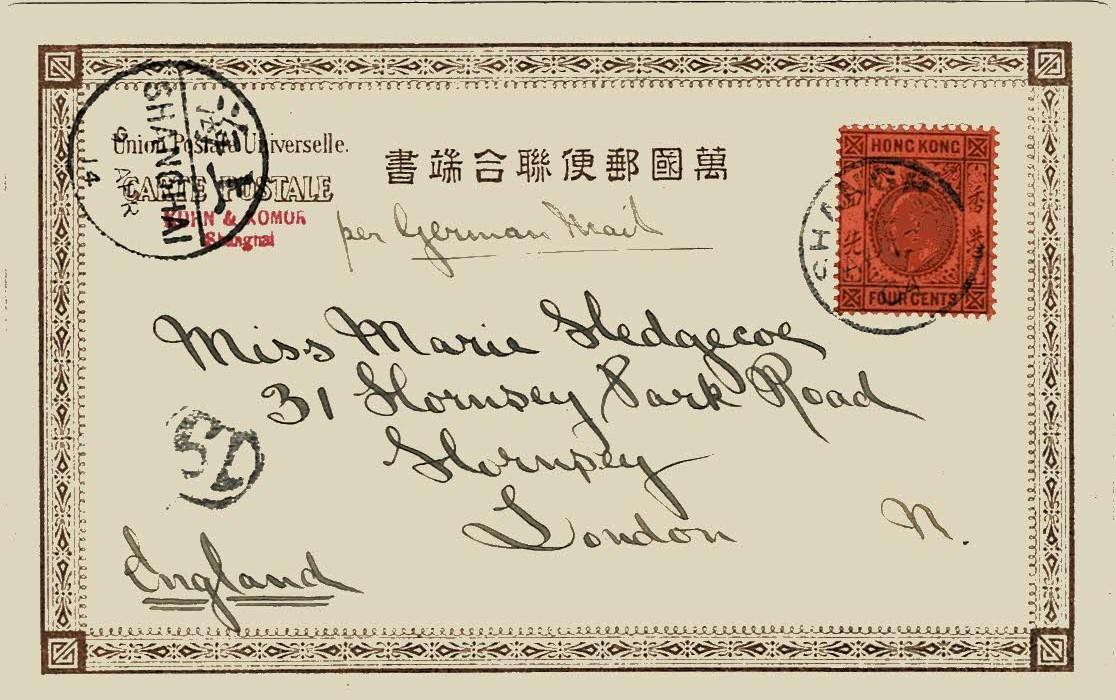 Union Postale Universelle.
CARTE POSTALE
書端合聯便郵國萬
KUHN & KOMOR
Shanghai
per German Mail
SHANGHAI
9 APR
14
HONG KONG
FOUR CENTS
SHANGH
Miss Marie Sledgecoe
31 Hornsey Park Road
Hornsey
London N.
England